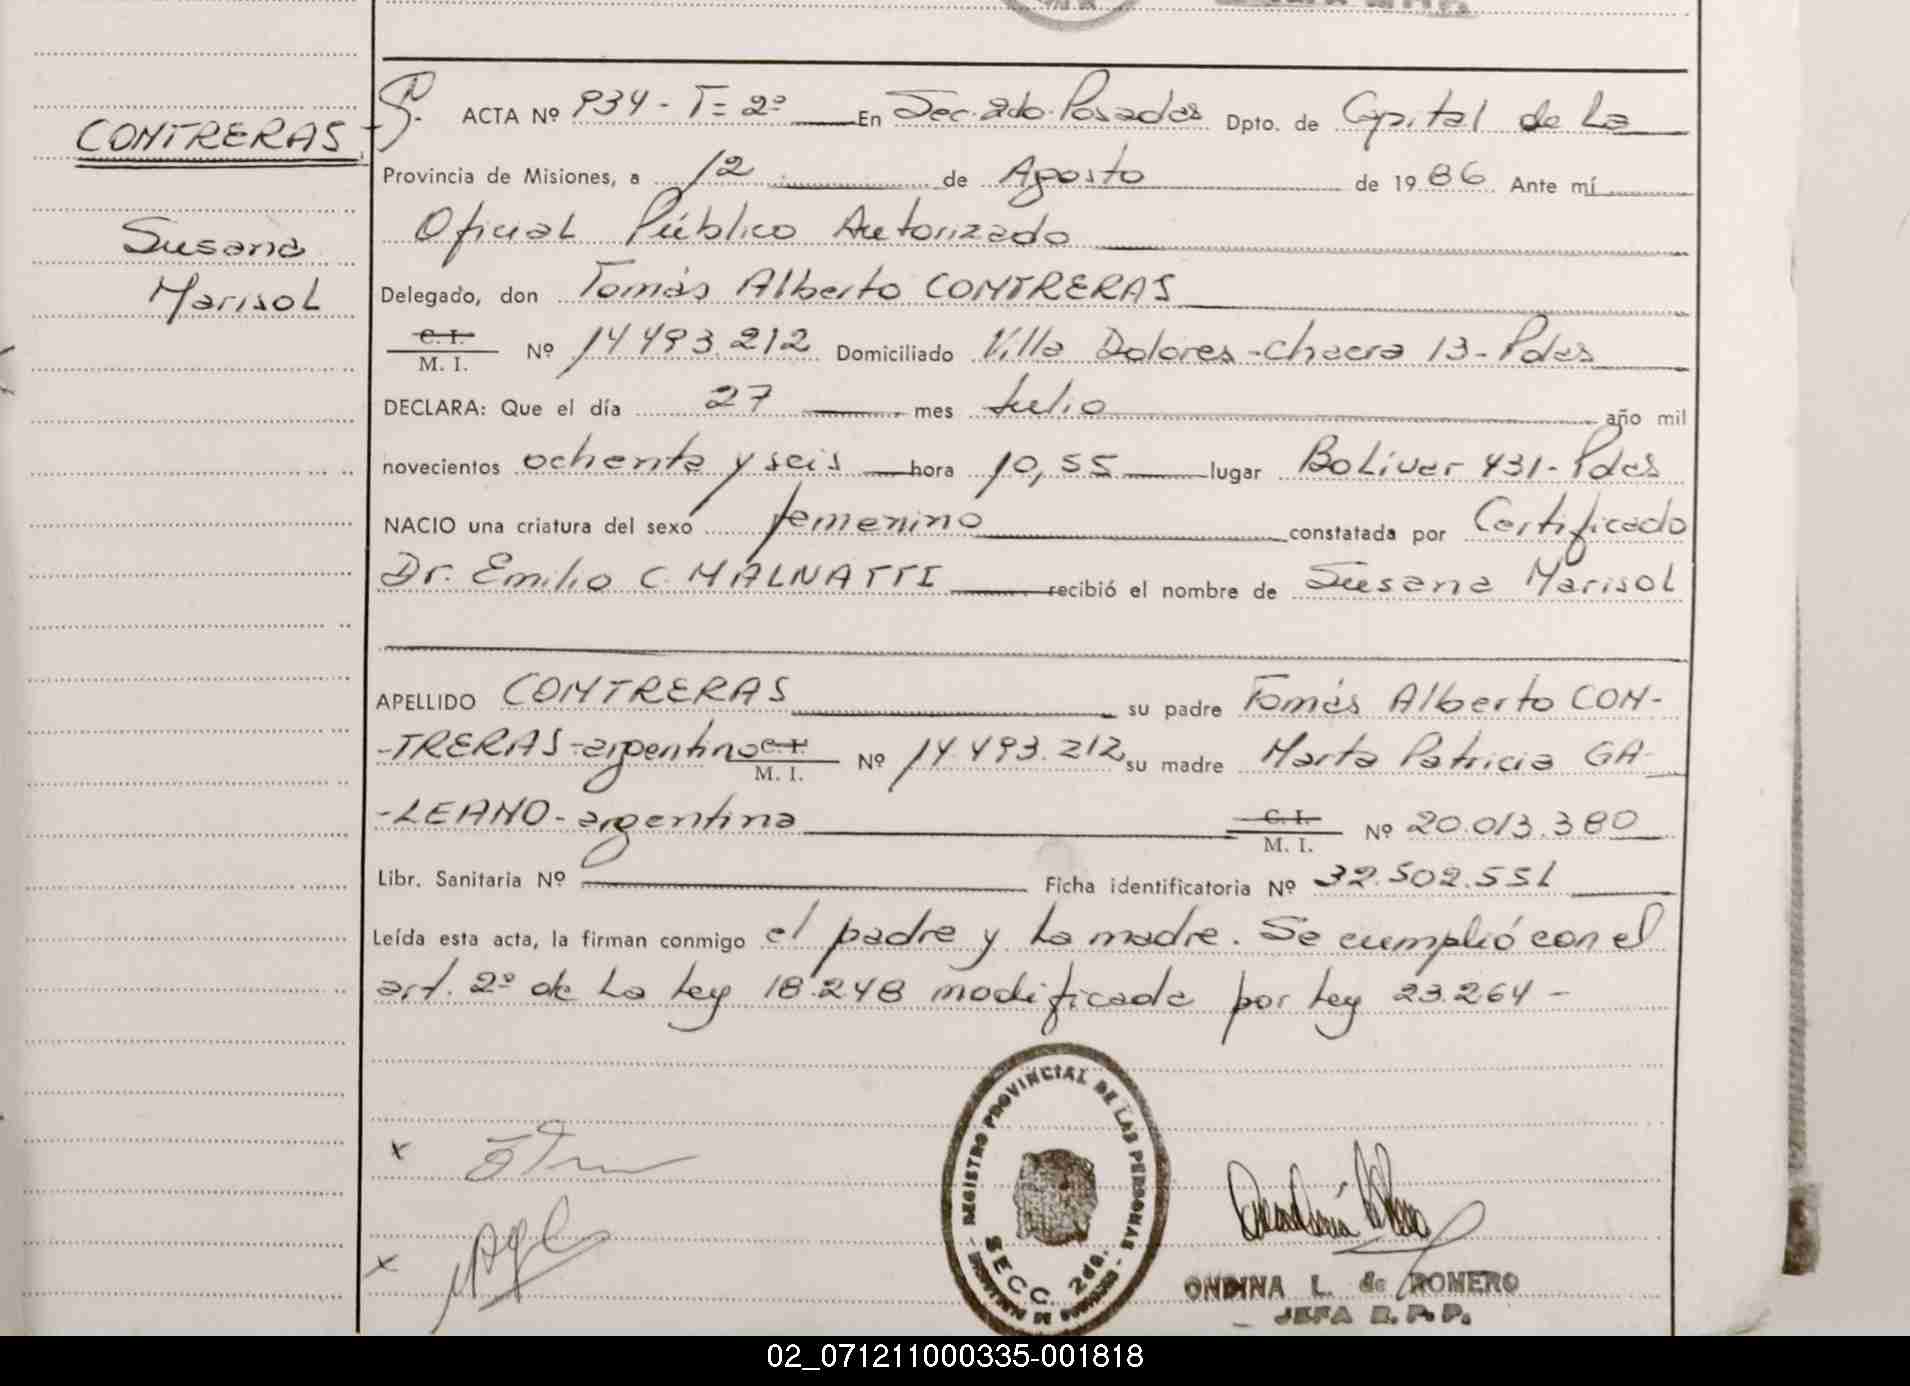 CONTRERAS
Susana
Marisol
ACTA Nº 934 - T= 2º En Sec. 2do. Posadas Dpto. de Capital de La
Provincia de Misiones, a 12 de Agosto de 1986 Ante mí
Oficial Público Autorizado
Delegado, don Tomás Alberto CONTRERAS
C. I.
M. I. Nº 14.493.212 Domiciliado Villa Dolores - Chacra 13 - Pdas
DECLARA: Que el día 27 mes Julio año mil
novecientos ochenta y seis hora 10,55 lugar Bolívar 431 - Pdas
NACIO una criatura del sexo femenino constatada por Certificado
Dr. Emilio C. MALNATTI recibió el nombre de Susana Marisol
APELLIDO CONTRERAS su padre Tomás Alberto CON-
-TRERAS - argentino C. I. M. I. Nº 14.493.212 su madre Marta Patricia GA-
-LEANO - argentina C. I. M. I. Nº 20.013.380
Libr. Sanitaria Nº Ficha identificatoria Nº 32.502.551
Leída esta acta, la firman conmigo el padre y La madre. Se cumplió con el
art. 2º de La Ley 18.248 modificada por Ley 23.264 -
REGISTRO PROVINCIAL DE LAS PERSONAS
SECC. 2da.
ONDINA L. de ROMERO
JEFA R.P.P.
02_071211000335-001818